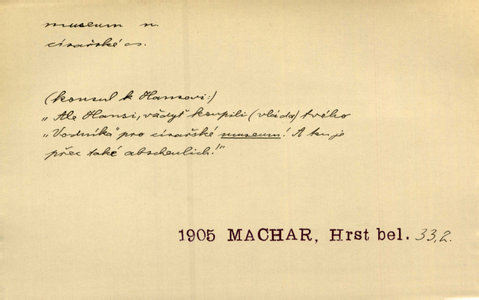 museum n.
císařské os.
(konsul k Hansovi:)
„Ale Hansi, vždyť koupili (vláda) tvého
„Vodníka" pro císařské museum! A ten je
přec také abscheulich!"
1905 MACHAR, Hrst bel. 33,2.